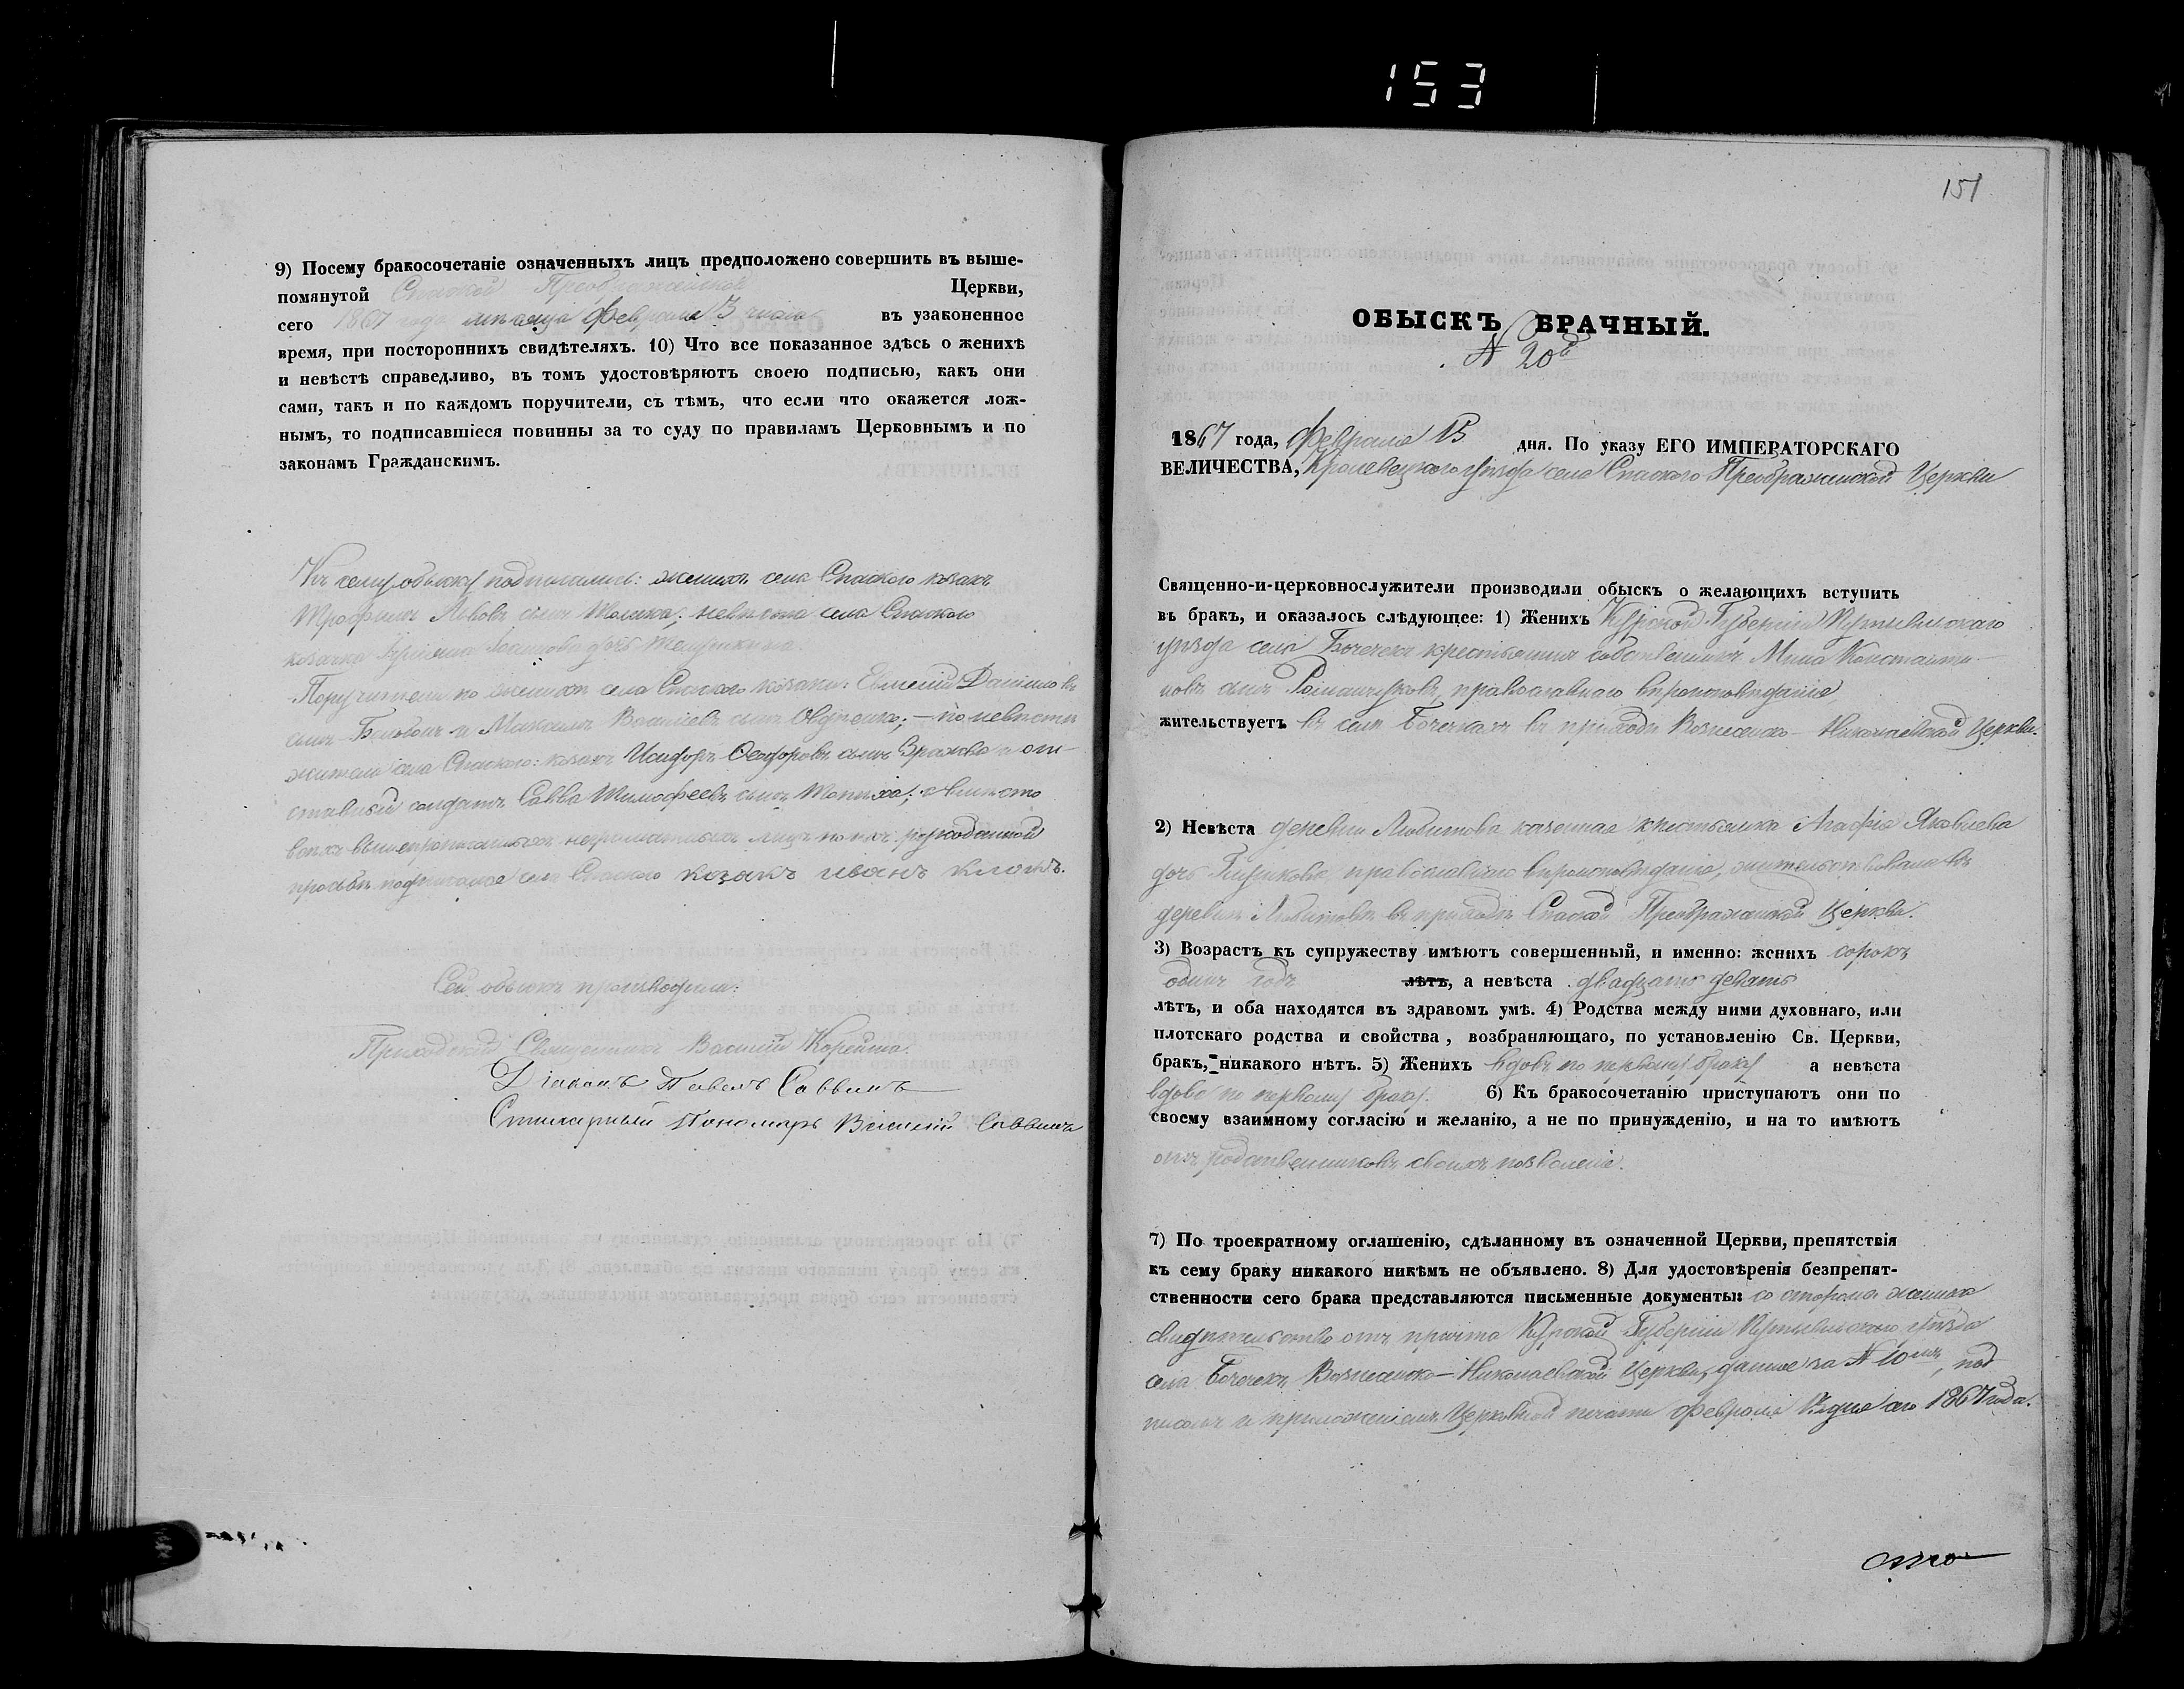 153
9) Посему бракосочетаніе означенныхъ лицъ предположено совершить въ выше-
помянутой Спаской Преображенской Церкви,
сего 1867 года мѣсяца Февраля 3 числа въ узаконенное
время, при постороннихъ свидѣтеляхъ. 10) Что все показанное здѣсь о женихѣ
и невѣстѣ справедливо, въ томъ удостовѣряютъ своею подписью, какъ они
сами, такъ и по каждомъ поручители, съ тѣмъ, что если что окажется лож-
нымъ, то подписавшіеся повинны за то суду по правиламъ Церковнымъ и по
законамъ Гражданскимъ.
Къ сему обыску подписались: женихъ села Спаского козакъ
Трофимъ Львовъ сынъ невѣста села Спаского
козачка Іоаннова дочь
Поручители по женихѣ села Спаского козаки: Евмений Даніиловъ
сынъ и Михаилъ Василіевъ сынъ Овдѣенко; – по невѣстѣ
жители села Спаского: козакъ Исидоръ Ѳеодоровъ сынъ и от-
ставный солдатъ Савва Тимофеевъ сынъ вмѣсто
всѣхъ вышепрописанныхъ неграмотныхъ лицъ по ихъ рукоданной
прозьбѣ подписался села Спаского козакъ иванъ
Сей обыскъ производили:
Приходскій Священникъ Василій Корейша.
Діаконъ Павелъ Саввинъ
Стихарный Пономарь Василій Саввичъ
151
ОБЫСКЪ БРАЧНЫЙ.
№ 20й
1867 года, Февраля 15 дня. По указу ЕГО ИМПЕРАТОРСКАГО
ВЕЛИЧЕСТВА, Кролевецкого уѣзда села Спаского Преображенской Церкви
Священно-и-церковнослужители производили обыскъ о желающихъ вступить
въ бракъ, и оказалось слѣдующее: 1) Женихъ Курской Губерніи Путивльскаго
уѣзда села Бочечекъ крестьянинъ собственникъ Мина Константи-
новъ сынъ Романчуковъ, православнаго вѣроисповѣданія,
жительствуетъ въ селѣ Бочечкахъ въ приходѣ Вознесенско-Николаевской Церкви.
2) Невѣста деревни Любитова казенная крестьянка Агафія Яковлева
дочь православнаго вѣроисповѣданія, жительствовала въ
деревнѣ Любитовѣ въ приходѣ Спаской Преображенской Церкви.
3) Возрастъ къ супружеству имѣютъ совершенный, и именно: женихъ сорокъ
одинъ годъ лѣтъ, а невѣста двадцать девять
лѣтъ, и оба находятся въ здравомъ умѣ. 4) Родства между ними духовнаго, или
плотскаго родства и свойства, возбраняющаго, по установленію Св. Церкви,
бракъ, никакого нѣтъ. 5) Женихъ вдовъ по первому браку а невѣста
вдова по первому браку. 6) Къ бракосочетанію приступаютъ они по
своему взаимному согласію и желанію, а не по принужденію, и на то имѣютъ
отъ родственниковъ своихъ позволеніе.
7) По троекратному оглашенію, сдѣланному въ означенной Церкви, препятствія
къ сему браку никакого никѣмъ не объявлено. 8) Для удостовѣренія безпрепят-
ственности сего брака представляются письменные документы: со стороны жениха
свидѣтельство отъ причта Курской Губерніи Путивльскаго уѣзда
села Бочечекъ Вознесенско-Николаевской Церкви, данное за № 10мъ, под
писомъ и приложеніемъ Церковной печати Февраля дня сего 1867 года.